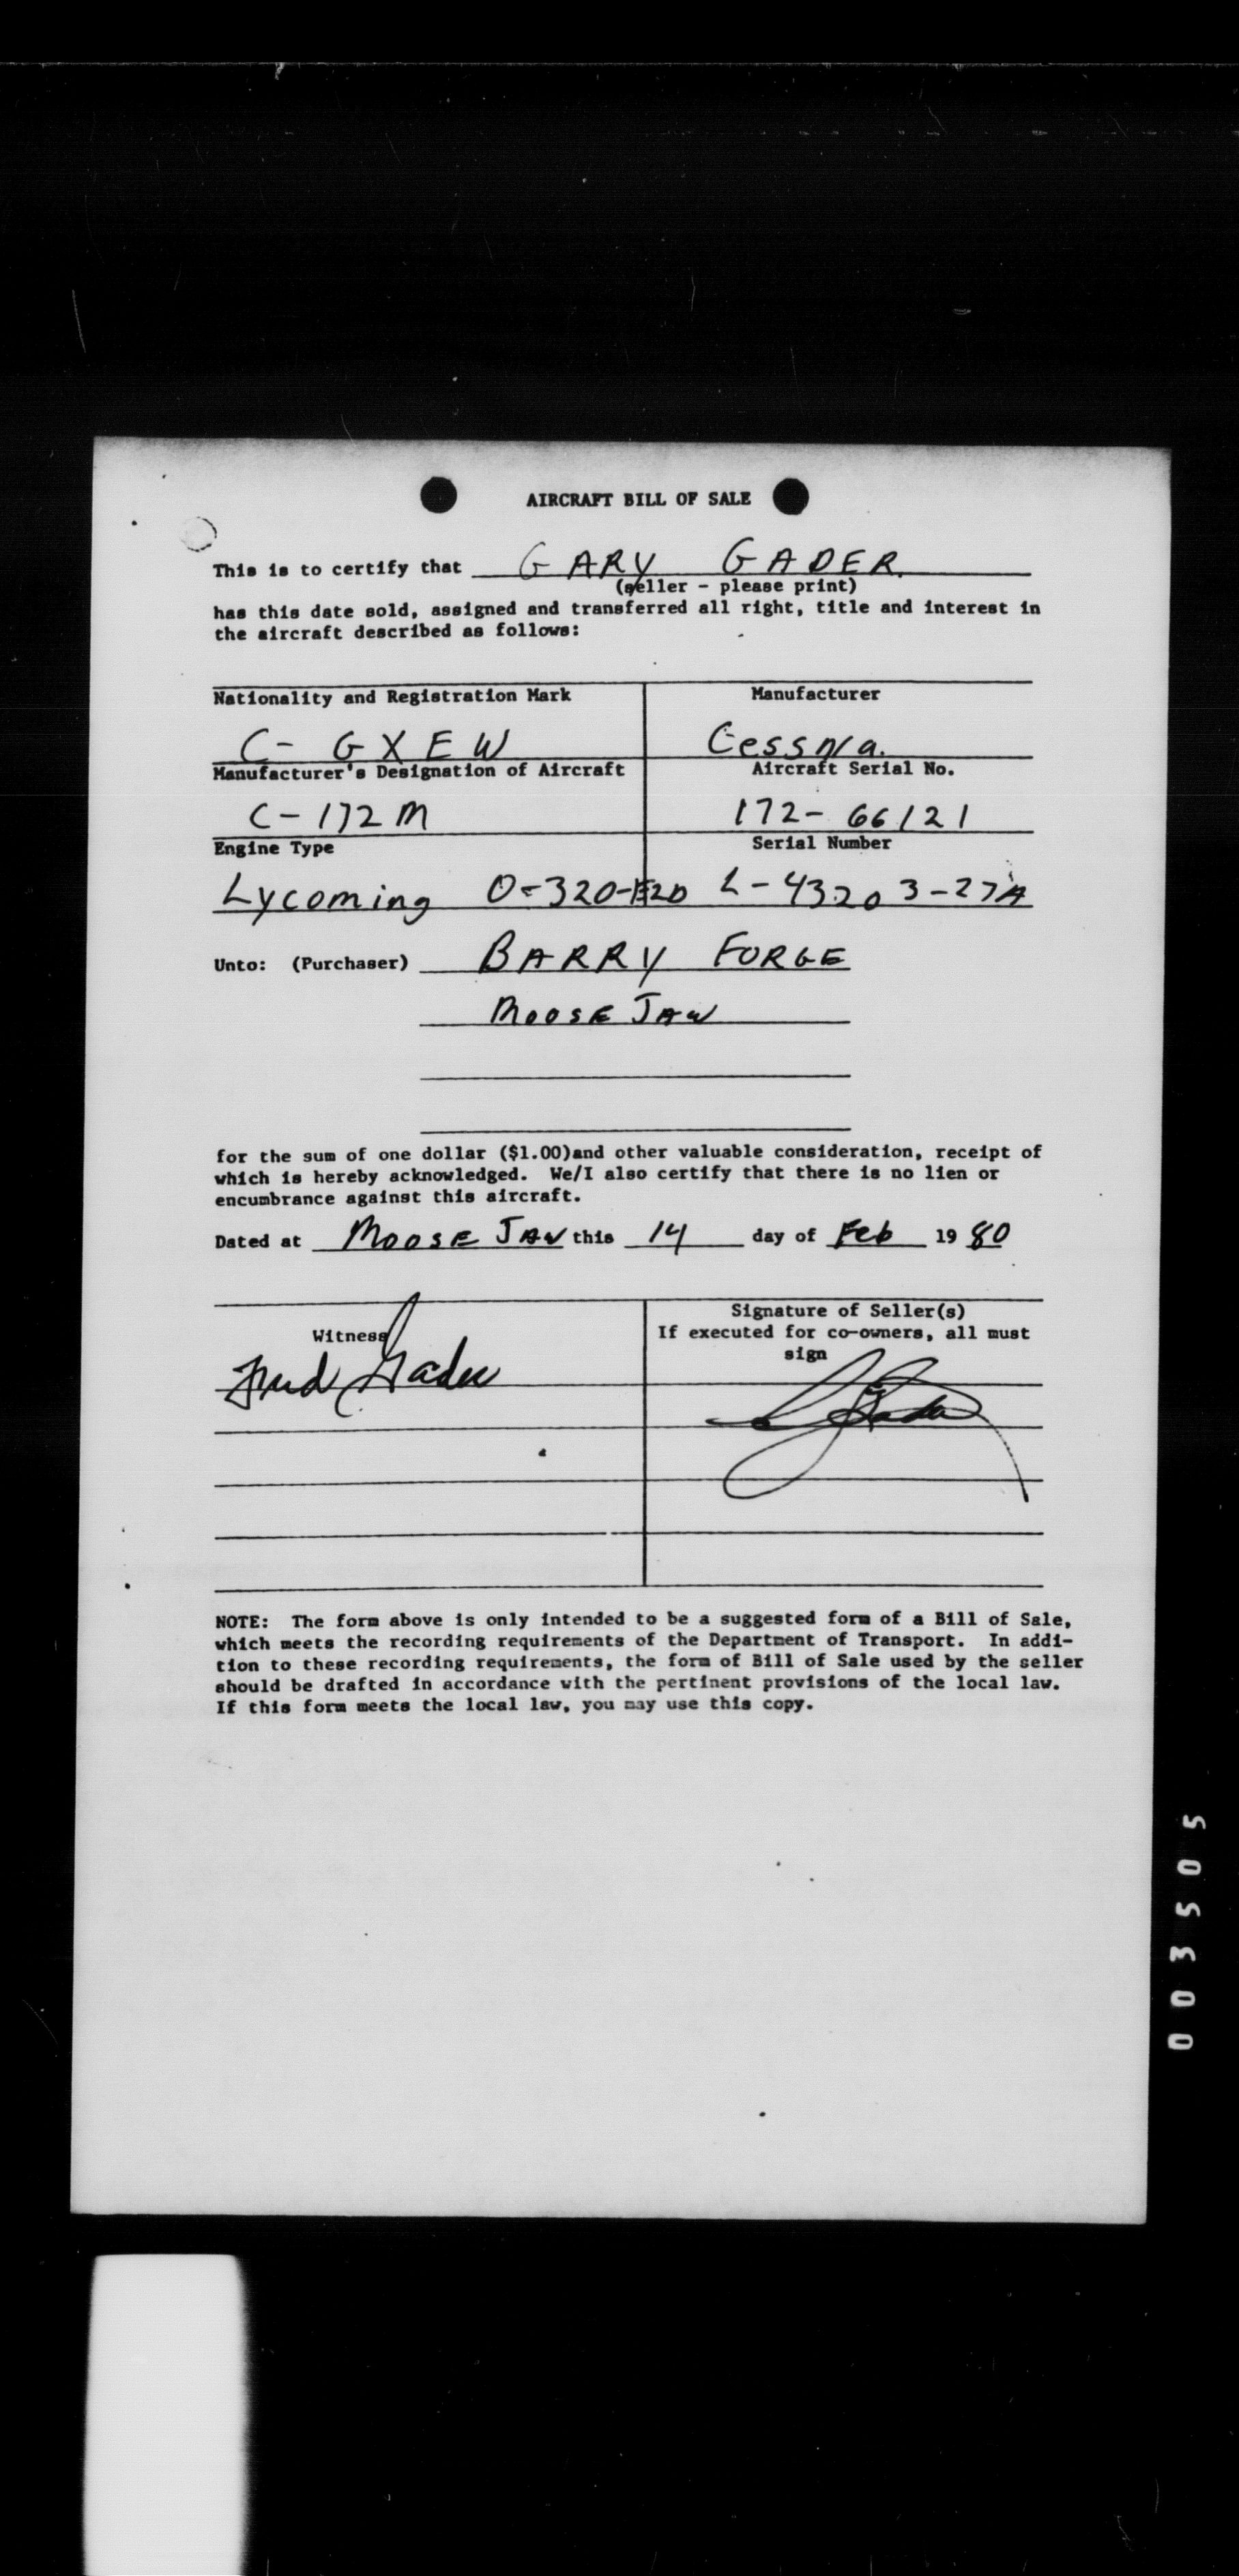 AIRCRAFT BILL OF SALE
This is to certify that GARY GADER
(seller - please print)
has this date sold, assigned and transferred all right, title and interest in
the aircraft described as follows:
Nationality and Registration Mark Manufacturer
C- GXEW Cessna.
Manufacturer's Designation of Aircraft Aircraft Serial No.
C-172M 172-66121
Engine Type Serial Number
Lycoming O-320-E2D L-43203-27A
Unto: (Purchaser) BARRY FORGE
MOOSE JAW
for the sum of one dollar ($1.00)and other valuable consideration, receipt of
which is hereby acknowledged. We/I also certify that there is no lien or
encumbrance against this aircraft.
Dated at MOOSE JAW this 14 day of Feb 19 80
Signature of Seller(s)
Witness If executed for co-owners, all must
sign
Fred Gader
Gader
NOTE: The form above is only intended to be a suggested form of a Bill of Sale,
which meets the recording requirements of the Department of Transport. In addi-
tion to these recording requirements, the form of Bill of Sale used by the seller
should be drafted in accordance with the pertinent provisions of the local law.
If this form meets the local law, you may use this copy.
003505